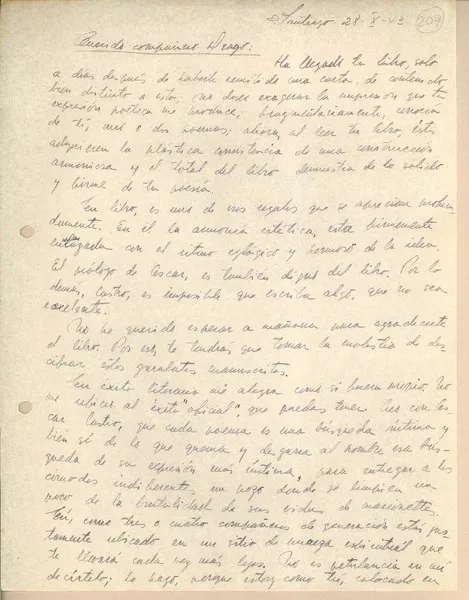 Santiago 28-X-43
209
Querido compañero Drago:
Ha llegado tu libro, solo
a días después de haberte remitido una carta, de contenido
bien distinto a esta; no deseo exagerar la impresión que tu
expresión poética me produce; fragmentariamente, conocía
de ti, uno o dos poemas; ahora, al leer tu libro, éstos
adquieren la plástica consistencia de una construcción
armoniosa y el total del libro demuestra de lo sólido
y firme de tu poesía.
Tu libro, es uno de esos regalos que se aprecian profun-
damente. En él la armonía estética, está firmemente
con el ritmo eglógico y hermoso de la idea.
El prólogo de Oscar, es también digno del libro. Por lo
demás, Castro, es imposible que escriba algo, que no sea
excelente.
No he querido esperar a mañana para agradecerte
el libro. Por eso, te tendrás que tomar la molestia de des-
cifrar estos garabatos manuscritos.
Tu éxito literario me alegra como si fuera propio. No
me refiero al éxito "oficial", que puedas tener. Creo con Os-
car Castro, que cada poema es una búsqueda íntima y
bien sé de lo que quema y desgarra al hombre esa bús-
queda de su expresión más íntima, para entregar a los
cómodos indiferentes, un vaso donde se limpien un
poco de la brutalidad de sus vidas de marionettes.
Tú, como tres o cuatro compañeros de generación estás jus-
tamente ubicado en un sitio de marga espiritual que
te llevará cada vez más lejos. No es petulancia en mí
decírtelo; lo hago, porque estoy como tú, colocado en